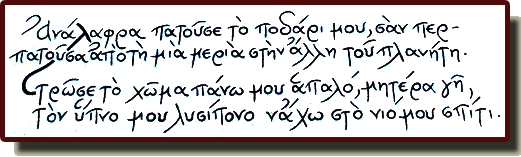 Ἀνάλαφρα πατοῦσε τὸ ποδάρι μου, σὰν περ-
πατοῦσα ἀπὸ τὴ μιὰ μεριὰ στὴν ἄλλη τοῦ πλανήτη.
Στρῶσε τὸ χῶμα πάνω μου ἁπαλό, μητέρα γῆ,
τὸν ὕπνο μου λυσίπονο νἄχω στὸ νιό μου σπίτι.